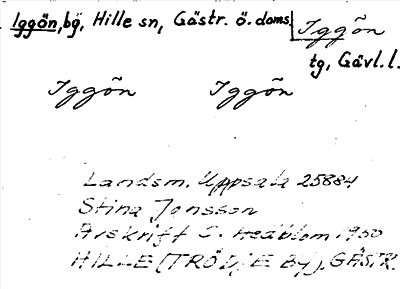 Iggön, bÿ, Hille sn, Gästr. ö. doms.
Iggõn
tg, Gävl. l.
Iggõn Iggõn
Landsm. Uppsala 25884
Stina Jonsson
Avskrift S. Hedblom 1950
HILLE (TRÖDJE BY), GÄSTR.